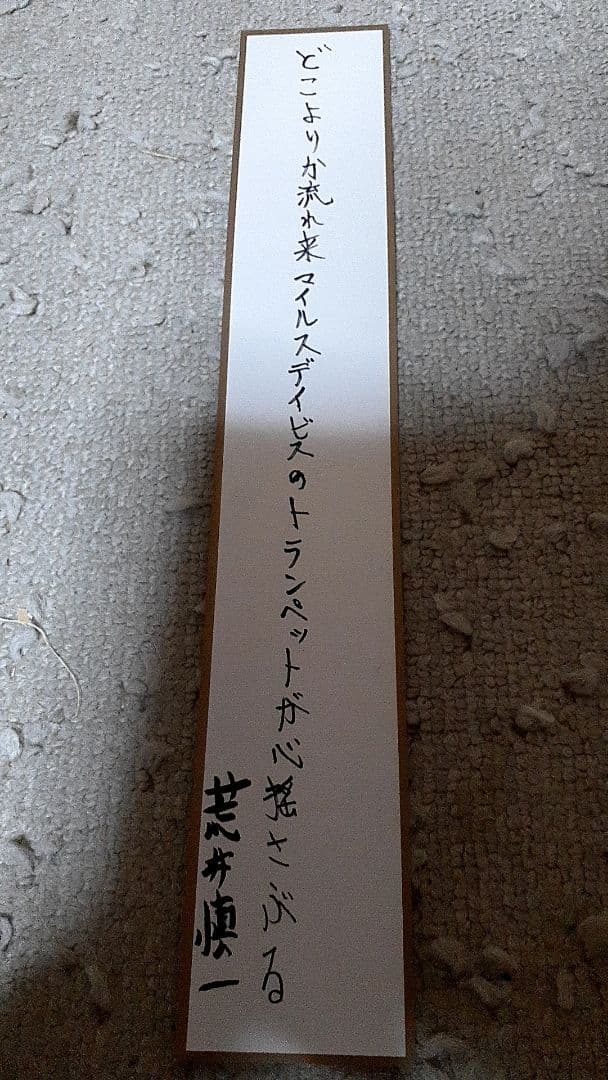 どこよりか流れ来マイルスデイビスのトランペットが心揺さぶる
荒井慎一